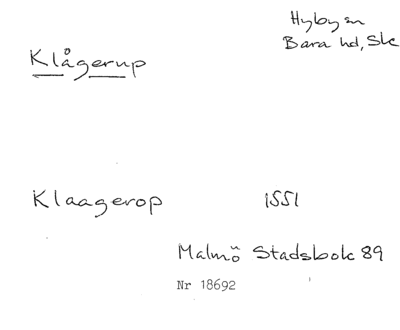 Hyby sn
Bara hd, Sk
Klågerup
Klaagerop 1551
Malmö Stadsbok 89
Nr 18692